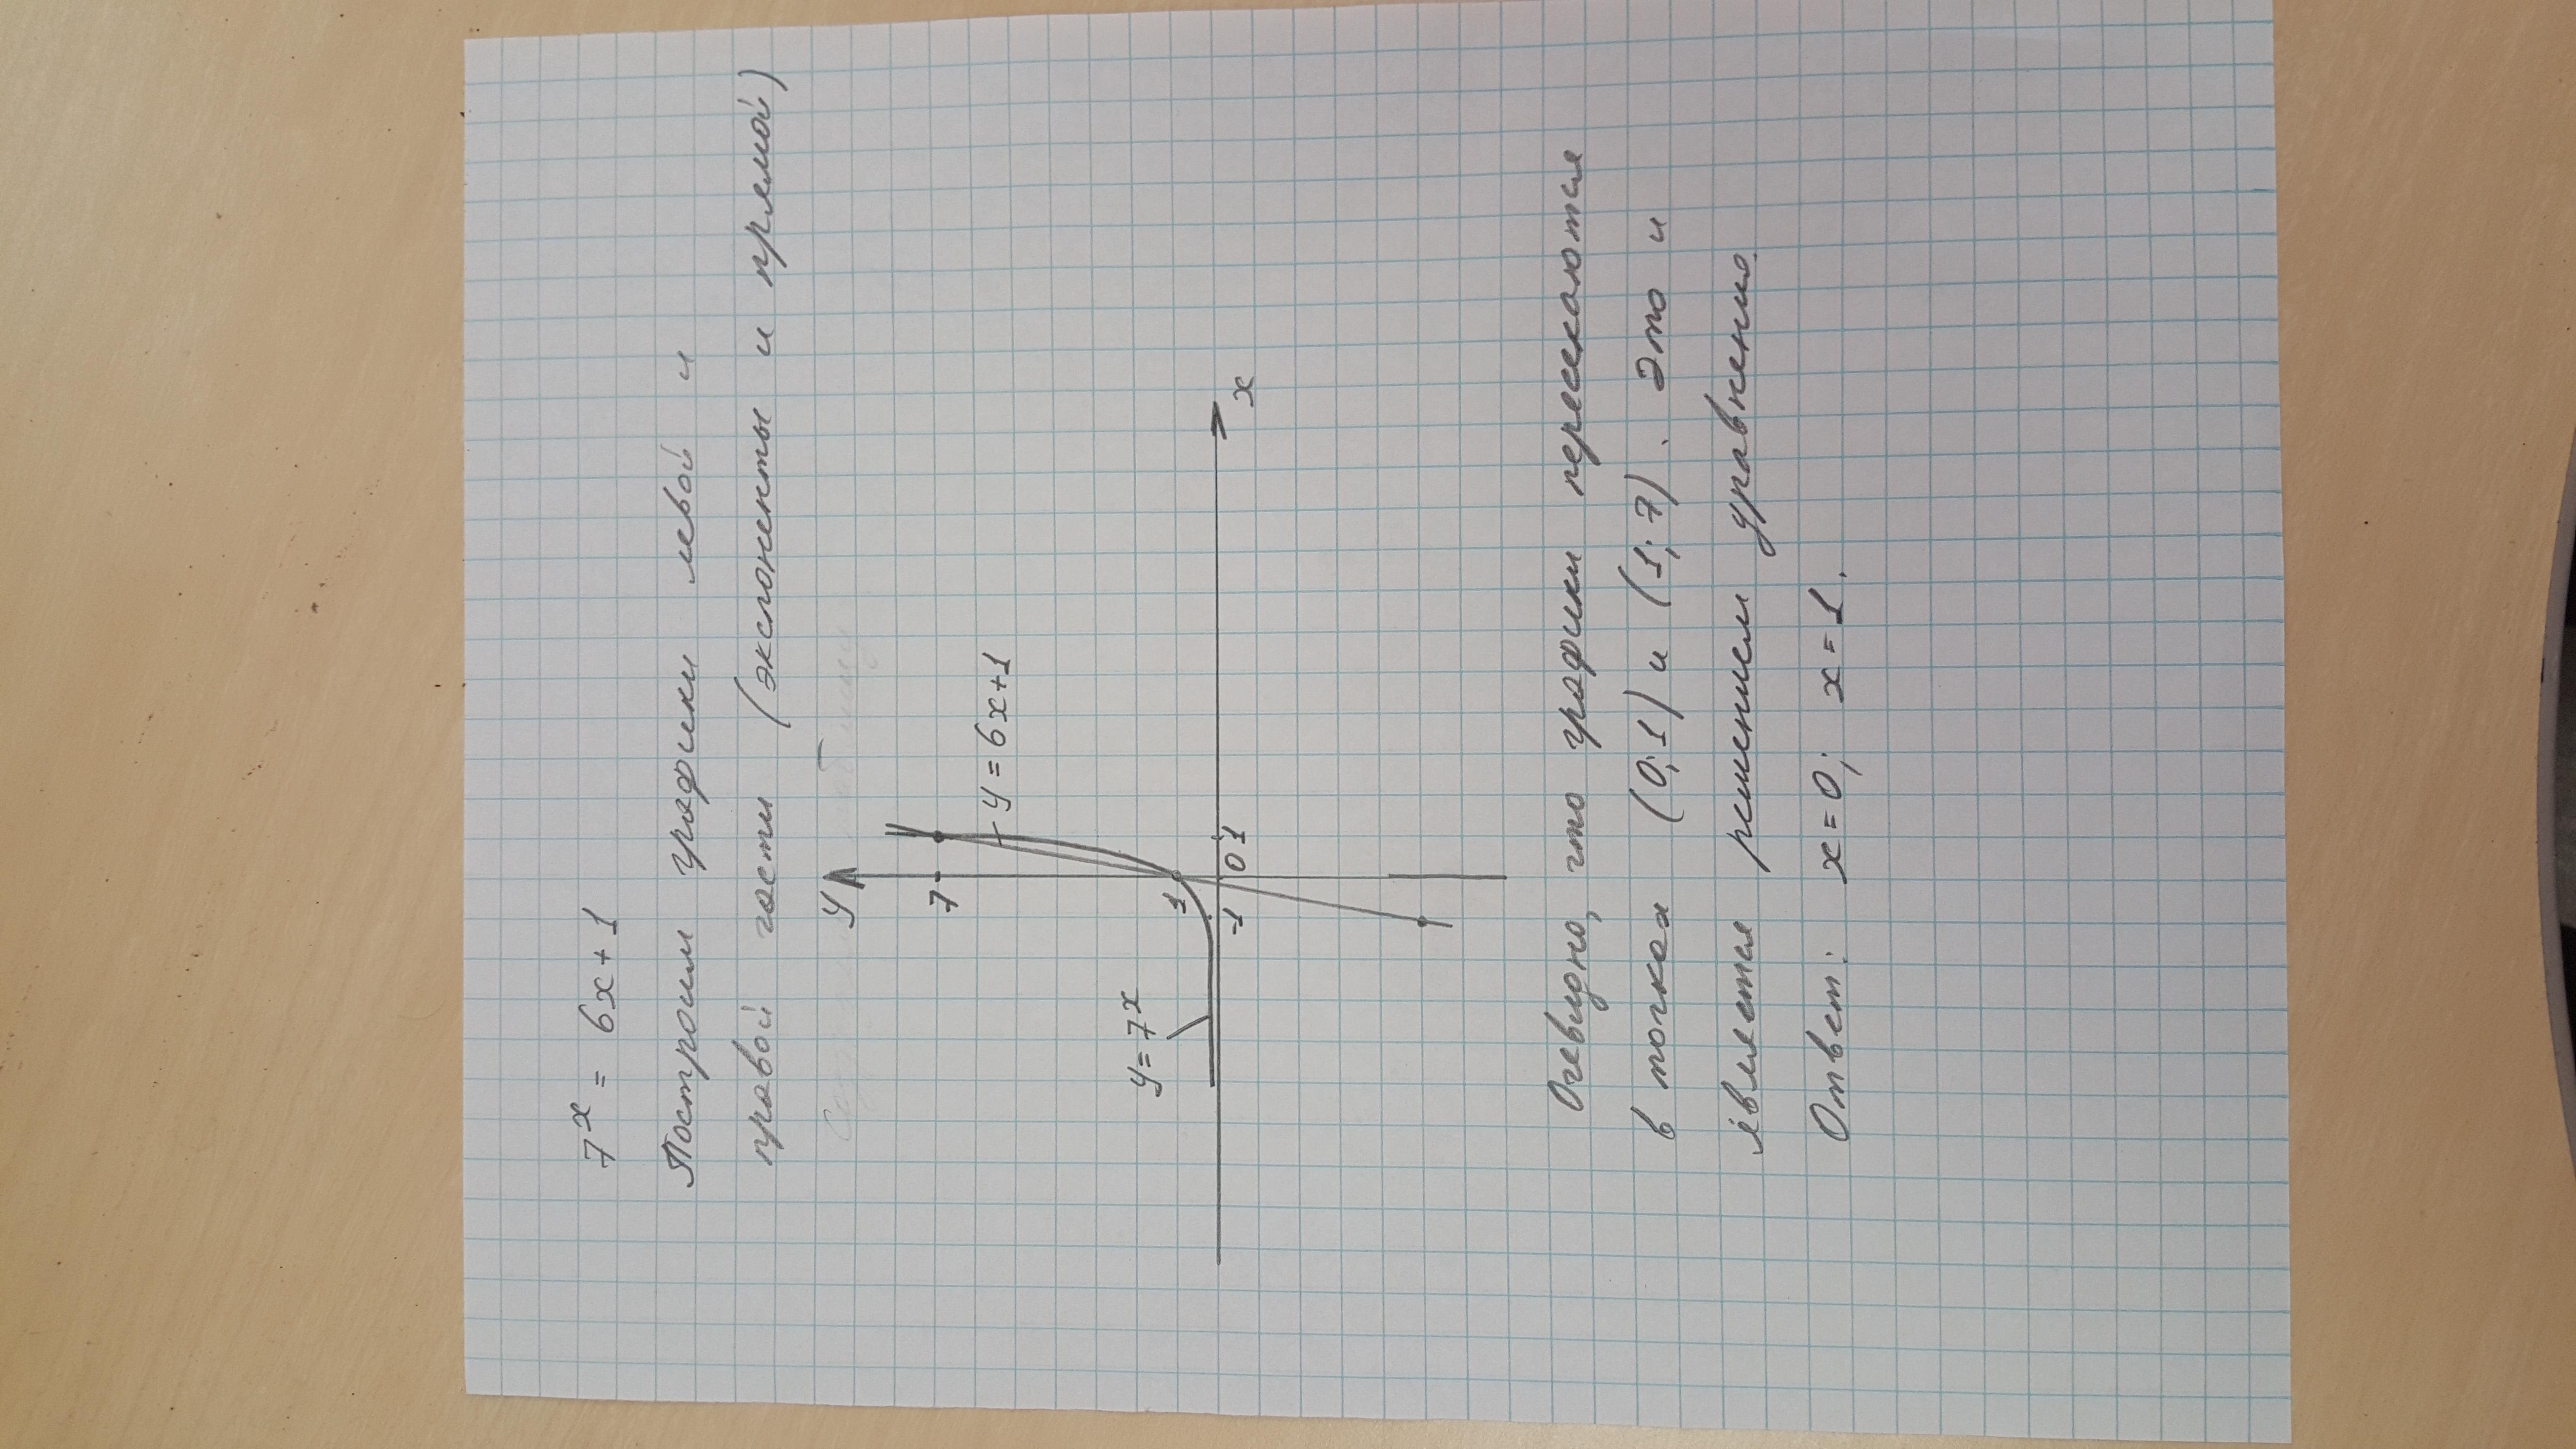 7ˣ = 6x+1
Построим графики левой и
правой части (экспоненты и прямой)
y
7
y = 6x+1
y = 7ˣ
1
-1
0
1
x
Очевидно, что графики пересекаются
в точках (0; 1) и (1; 7). Это и
является решением уравнению.
Ответ: x=0; x=1.